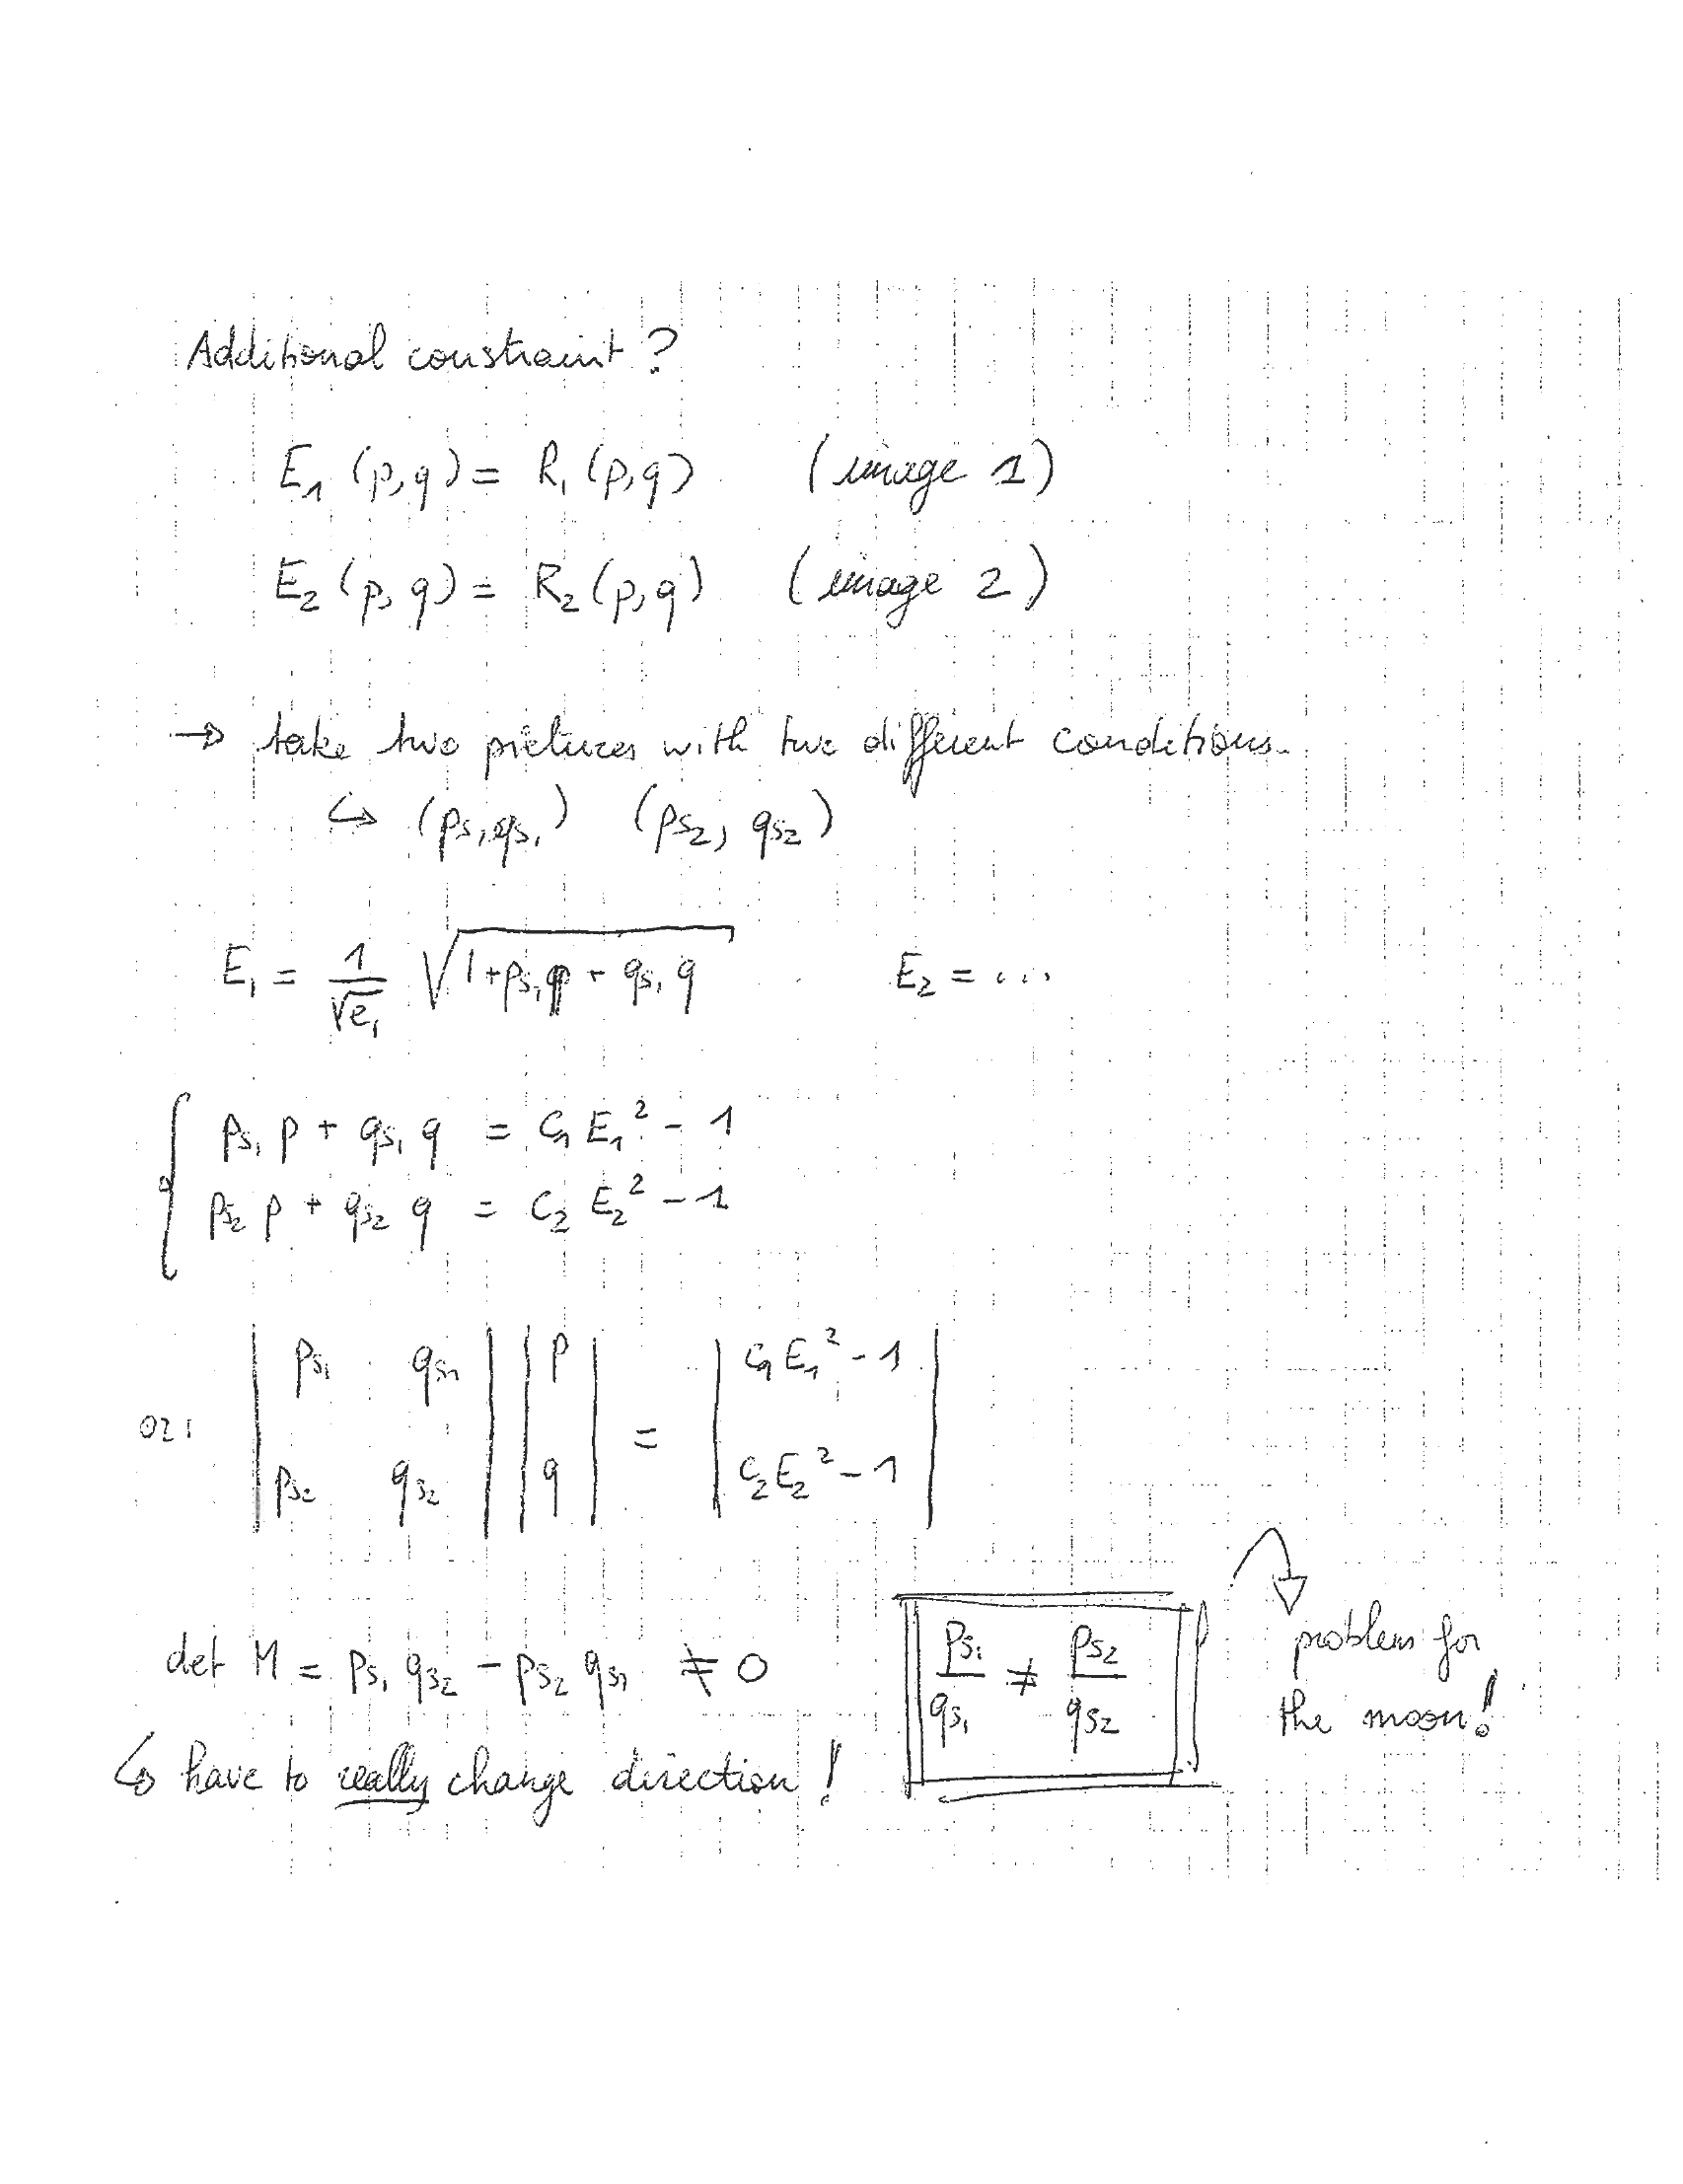 Additional constraint ?
E₁ (p,q) = R₁ (p,q) (image 1)
E₂ (p,q) = R₂ (p,q) (image 2)
→ take two pictures with two different conditions.
↳ (ps₁,qs₁) (ps₂, qs₂)
E₁ = 1/√c₁ √(1+ps₁p + qs₁q) E₂ = ...
ps₁ p + qs₁ q = c₁ E₁² - 1
ps₂ p + qs₂ q = c₂ E₂² - 1
or: | ps₁ qs₁ | | p | = | c₁ E₁² - 1 |
| ps₂ qs₂ | | q | | c₂ E₂² - 1 |
det M = ps₁ qs₂ - ps₂ qs₁ ≠ 0
ps₁/qs₁ ≠ ps₂/qs₂
problem for
the moon!
↳ have to really change direction !